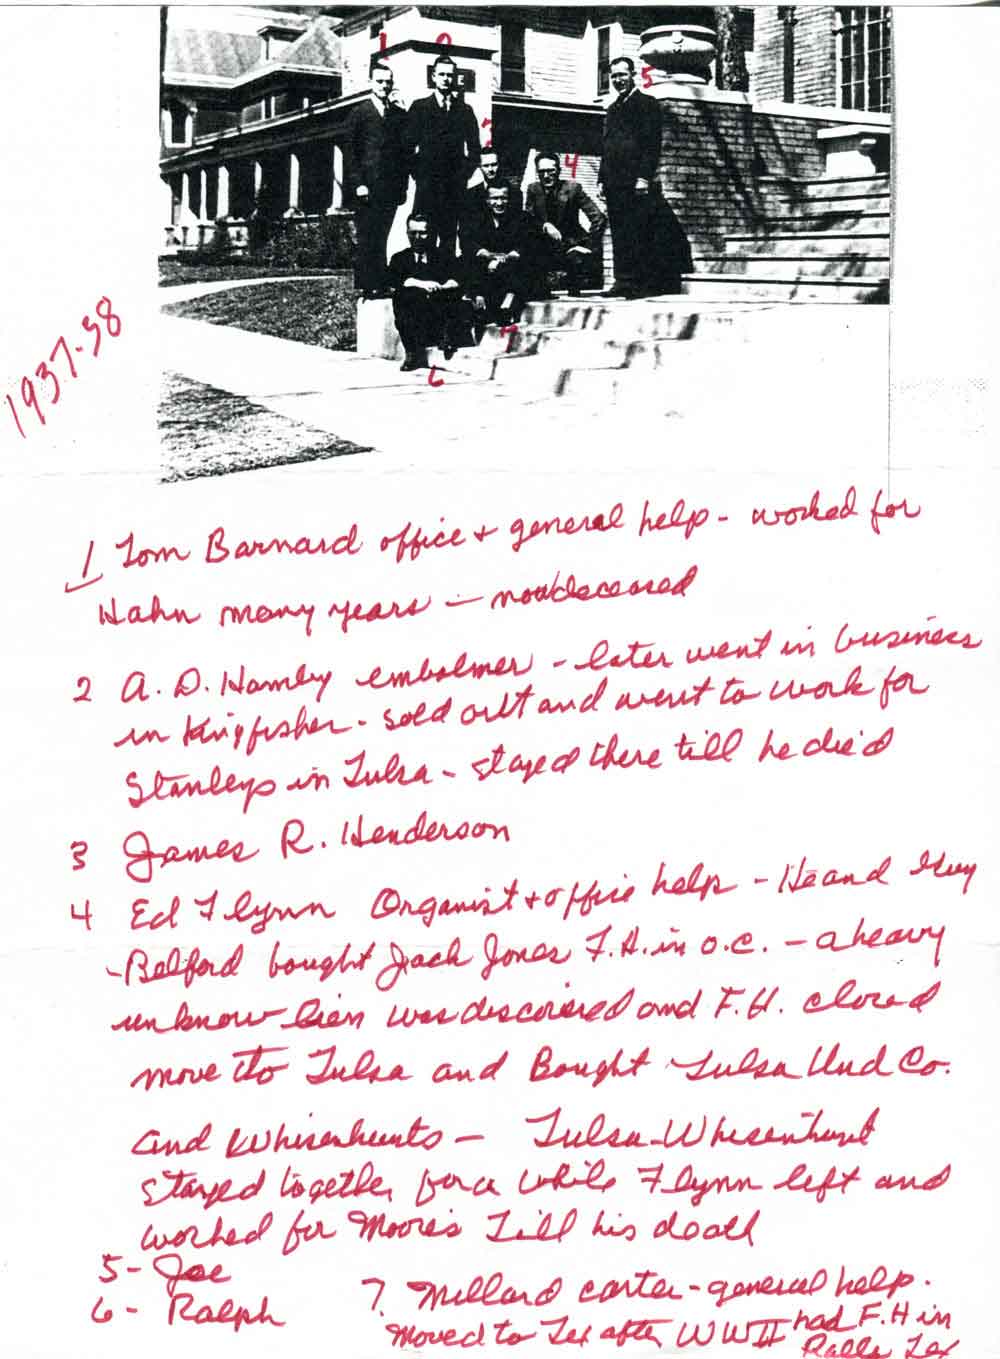 1
2
3
4
5
6
7
1937-38
1 Tom Barnard office + general help - worked for
Hahn many years - now deceased
2 A. D. Hamby embalmer - later went in business
in Kingfisher - sold out and went to work for
Stanleys in Tulsa - stayed there till he died
3 James R. Henderson
4 Ed Flynn Organist + office help - He and Guy
- Belford bought Jack Jones F.H. in O.C. - a heavy
unknow lien was discovered and F.H. closed
move to Tulsa and Bought Tulsa Und Co.
and Whisenhunts - Tulsa-Whisenhunt
stayed together for a while Flynn left and
worked for Moore's Till his death
5 - Joe
6 - Ralph
7. Millard Carter - general help.
Moved to Tex after WWII had F.H in
Ralls Tex